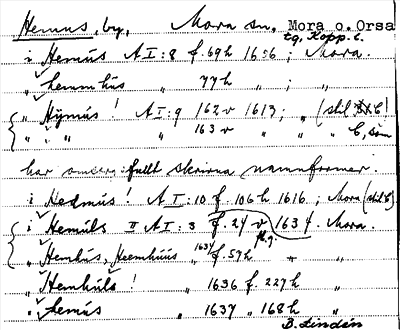 Hemus, by, Mora sn, Mora o. Orsa
tg, Kopp. l.
i Hemús A I:8 f. 69h 1656 ; Mora.
" Hemmhús " 77h " ; "
" Hÿmús! A I:9 162v 1613, " (stil B)
" " " 163v " " " C, som
har fullt skrivna namnformer.
i Hedmús! A I:10 f. 106h 1616 ; Mora (stil C)
i Hemúls II A I:3 f. 24v 1634. Mora.
" Hemhús, Heemhúús 1634 f. 57h " "
" Hemhúls! " 1636 f. 227h "
i Hemús " 1637 " 168h "
B. Lindén